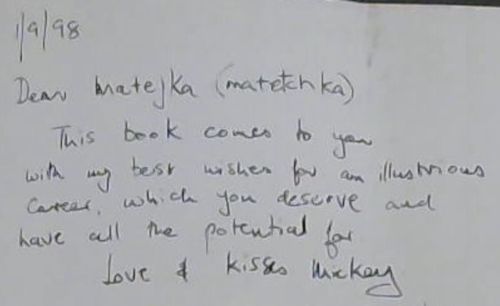 1/9/98
Dear Matejka (matetchka)
This book comes to you
with my best wishes for an illustrious
career, which you deserve and
have all the potential for
Love & kisses Mickey